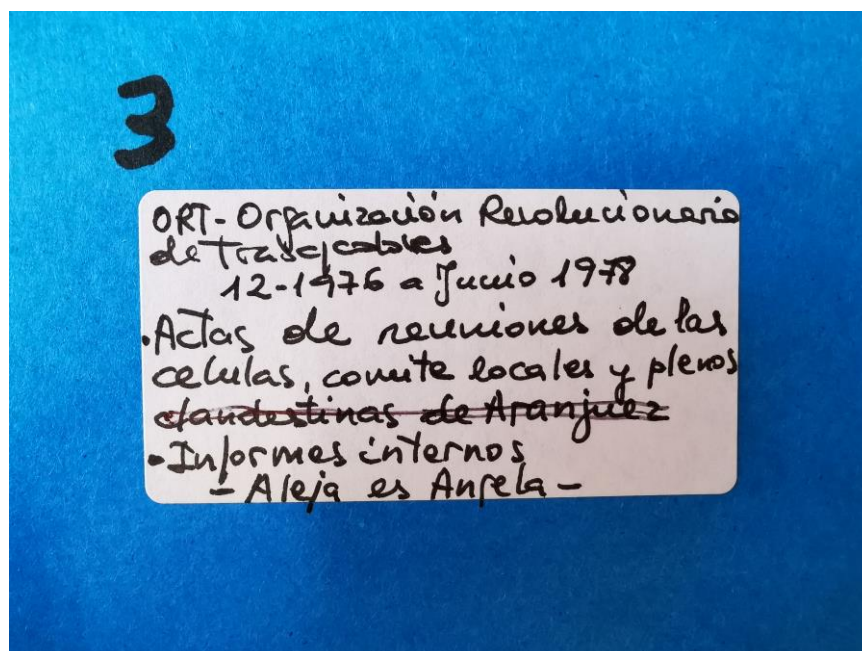 3
ORT-Organización Revolucionaria
de Trabajadores
12-1976 a Junio 1978
• Actas de reuniones de las
celulas, comite locales y plenos
clandestinas de Aranjuez
• Informes internos
- Aleja es Angela -